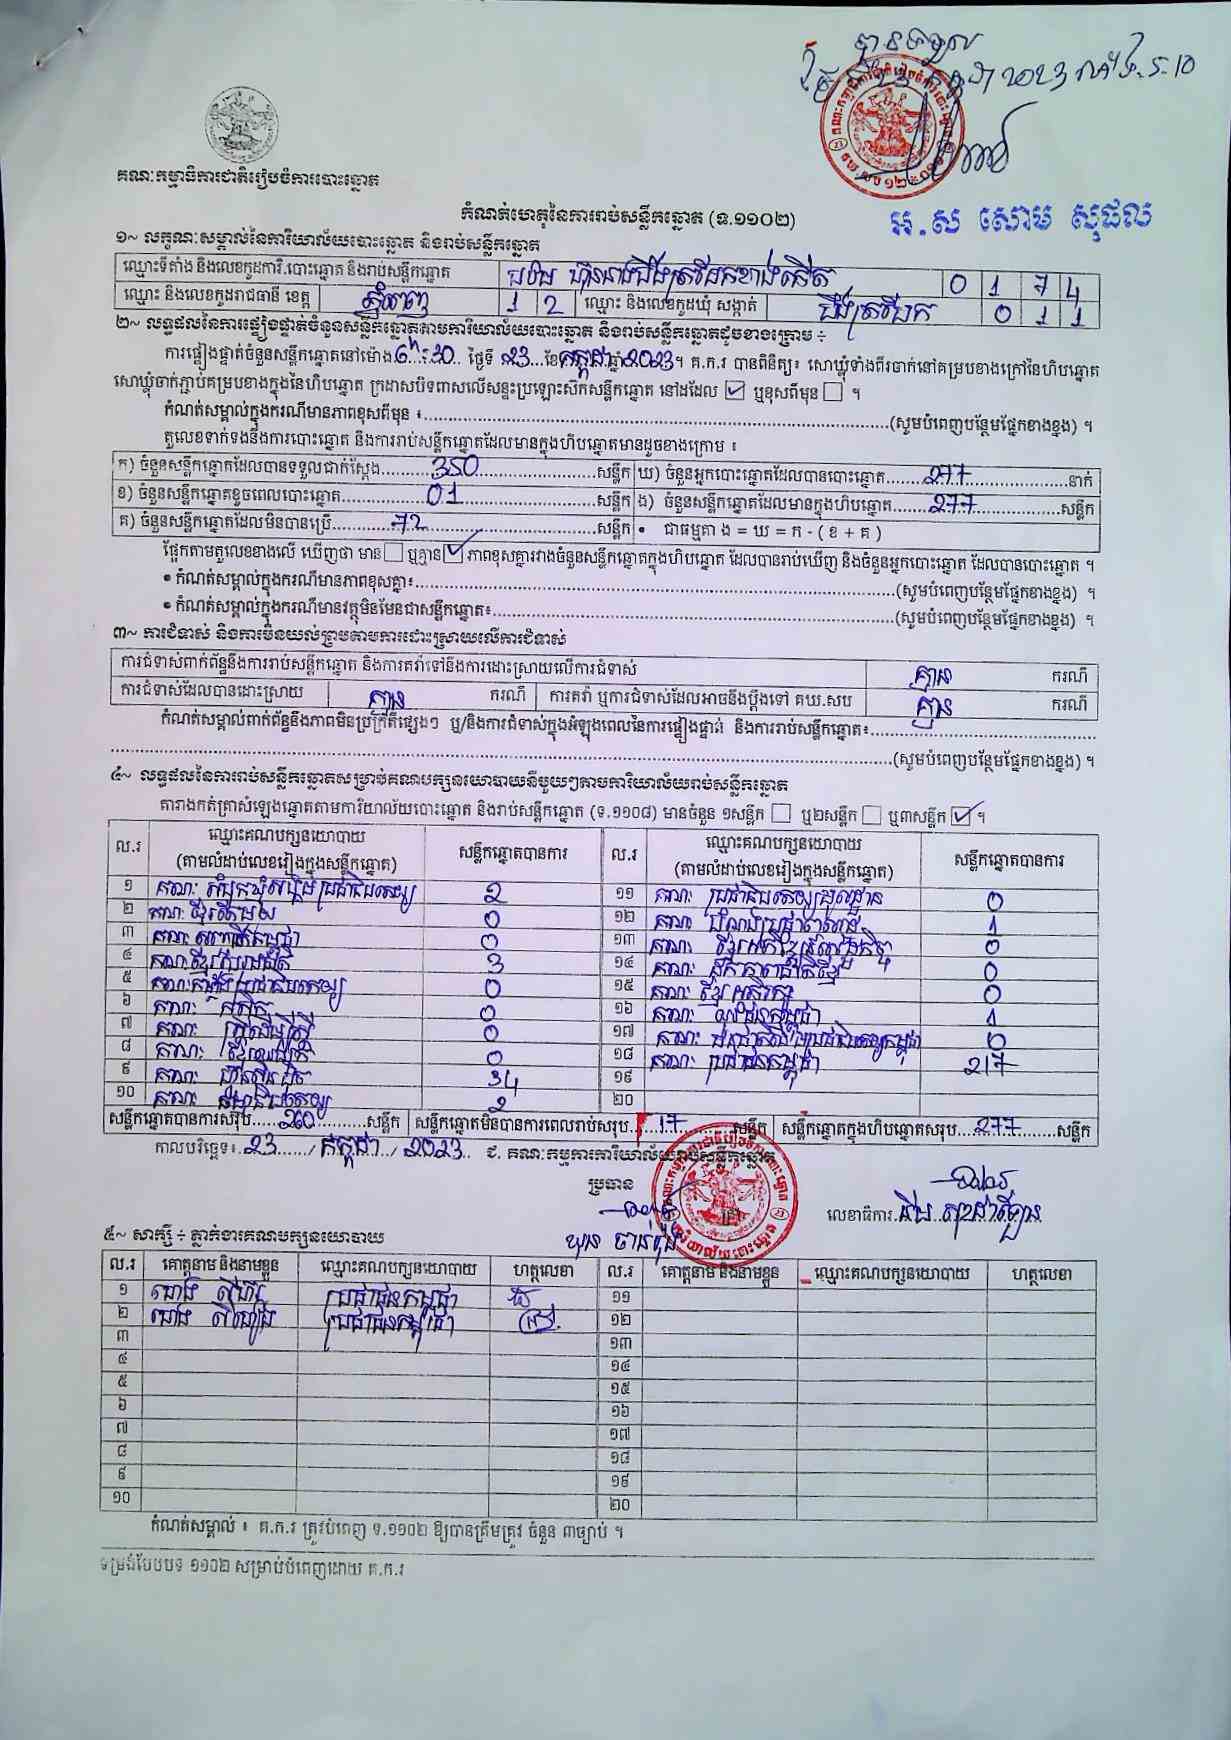 គណៈកម្មាធិការជាតិរៀបចំការបោះឆ្នោត
កំណត់ហេតុនៃការរាប់សន្លឹកឆ្នោត (ទ.១១០២)
អ.ស សោម សុផល
១~ លក្ខណៈសម្គាល់នៃការិយាល័យបោះឆ្នោត និងរាប់សន្លឹកឆ្នោត
ឈ្មោះទីតាំង និងលេខកូដការិ.បោះឆ្នោត និងរាប់សន្លឹកឆ្នោត 0 1 7 4
ឈ្មោះ និងលេខកូដរាជធានី ខេត្ត ភ្នំពេញ 1 2 ឈ្មោះ និងលេខកូដឃុំ សង្កាត់ បឹងត្របែក 0 1 1
២~ លទ្ធផលនៃការផ្ទៀងផ្ទាត់ចំនួនសន្លឹកឆ្នោតតាមការិយាល័យបោះឆ្នោត និងរាប់សន្លឹកឆ្នោតដូចខាងក្រោម ៖
ការផ្ទៀងផ្ទាត់ចំនួនសន្លឹកឆ្នោតនៅម៉ោង ថ្ងៃទី 23 ខែ កក្កដា ឆ្នាំ 2023 ។ គ.ក.រ បានពិនិត្យ៖ សោឃ្លុំទាំងពីរចាក់នៅគម្របខាងក្រៅនៃហិបឆ្នោត
សោឃ្លុំចាក់ភ្ជាប់គម្របខាងក្នុងនៃហិបឆ្នោត ក្រដាសបិទពាសលើសន្ទះប្រឡោះសៀតសន្លឹកឆ្នោត នៅដដែល ☑ ឬខុសពីមុន ☐ ។
កំណត់សម្គាល់ក្នុងករណីមានភាពខុសពីមុន ៖ (សូមបំពេញបន្ថែមផ្នែកខាងខ្នង) ។
តួលេខទាក់ទងនឹងការបោះឆ្នោត និងការរាប់សន្លឹកឆ្នោតដែលមានក្នុងហិបឆ្នោតមានដូចខាងក្រោម ៖
ក) ចំនួនសន្លឹកឆ្នោតដែលបានទទួលជាក់ស្តែង 350 សន្លឹក ឃ) ចំនួនអ្នកបោះឆ្នោតដែលបានបោះឆ្នោត 277 នាក់
ខ) ចំនួនសន្លឹកឆ្នោតខូចពេលបោះឆ្នោត 01 សន្លឹក ង) ចំនួនសន្លឹកឆ្នោតដែលមានក្នុងហិបឆ្នោត 277 សន្លឹក
គ) ចំនួនសន្លឹកឆ្នោតដែលមិនបានប្រើ 72 សន្លឹក • ជាធម្មតា ង = ឃ = ក - ( ខ + គ )
ផ្អែកតាមតួលេខខាងលើ ឃើញថា មាន ☐ ឬគ្មាន ☑ ភាពខុសគ្នារវាងចំនួនសន្លឹកឆ្នោតក្នុងហិបឆ្នោត ដែលបានរាប់ឃើញ និងចំនួនអ្នកបោះឆ្នោត ដែលបានបោះឆ្នោត ។
• កំណត់សម្គាល់ក្នុងករណីមានភាពខុសគ្នា៖ (សូមបំពេញបន្ថែមផ្នែកខាងខ្នង) ។
• កំណត់សម្គាល់ក្នុងករណីមានវត្ថុមិនមែនជាសន្លឹកឆ្នោត៖ (សូមបំពេញបន្ថែមផ្នែកខាងខ្នង) ។
៣~ ការជំទាស់ និងការមិនយល់ព្រមតាមការដោះស្រាយលើការជំទាស់
ការជំទាស់ពាក់ព័ន្ធនឹងការរាប់សន្លឹកឆ្នោត និងការតវ៉ាទៅនឹងការដោះស្រាយលើការជំទាស់ គ្មាន ករណី
ការជំទាស់ដែលបានដោះស្រាយ គ្មាន ករណី ការតវ៉ា ឬការជំទាស់ដែលអាចនឹងប្តឹងទៅ គឃ.សប គ្មាន ករណី
កំណត់សម្គាល់ពាក់ព័ន្ធនឹងភាពមិនប្រក្រតីផ្សេងៗ ឬ/និងការជំទាស់ក្នុងអំឡុងពេលនៃការផ្ទៀងផ្ទាត់ និងការរាប់សន្លឹកឆ្នោត៖
(សូមបំពេញបន្ថែមផ្នែកខាងខ្នង) ។
៤~ លទ្ធផលនៃការរាប់សន្លឹកឆ្នោតសម្រាប់គណបក្សនយោបាយនីមួយៗតាមការិយាល័យរាប់សន្លឹកឆ្នោត
តារាងកត់ត្រាសំឡេងឆ្នោតតាមការិយាល័យបោះឆ្នោត និងរាប់សន្លឹកឆ្នោត (ទ.១១០៨) មានចំនួន ១សន្លឹក ☐ ឬ២សន្លឹក ☐ ឬ៣សន្លឹក ☑ ។
ល.រ ឈ្មោះគណបក្សនយោបាយ (តាមលំដាប់លេខរៀងក្នុងសន្លឹកឆ្នោត) សន្លឹកឆ្នោតបានការ ល.រ ឈ្មោះគណបក្សនយោបាយ (តាមលំដាប់លេខរៀងក្នុងសន្លឹកឆ្នោត) សន្លឹកឆ្នោតបានការ
១ គណៈ សំបុកឃ្មុំសង្គមប្រជាធិបតេយ្យ 2 ១១ គណៈ ប្រជាធិបតេយ្យមូលដ្ឋាន 0
២ គណៈ ខ្មែរតែមួយ 0 ១២ គណៈ 1
៣ 0 ១៣ 0
៤ 3 ១៤ 0
៥ 0 ១៥ គណៈ ខ្មែរអភិរក្ស 0
៦ គណៈ កសិករ 0 ១៦ គណៈ យុវជនកម្ពុជា 1
៧ គណៈ ស្ត្រីដើម្បីស្ត្រី 0 ១៧ 0
៨ គណៈ 0 ១៨ គណៈ ប្រជាជនកម្ពុជា 217
៩ គណៈ ហ៊្វុនស៊ិនប៉ិច 34 ១៩
១០ គណៈ ធម្មាធិបតេយ្យ 2 ២០
សន្លឹកឆ្នោតបានការសរុប 260 សន្លឹក សន្លឹកឆ្នោតមិនបានការពេលរាប់សរុប 17 សន្លឹក សន្លឹកឆ្នោតក្នុងហិបឆ្នោតសរុប 277 សន្លឹក
កាលបរិច្ឆេទ៖ 23 / កក្កដា / 2023 ជ. គណៈកម្មការការិយាល័យរាប់សន្លឹកឆ្នោត
ប្រធាន
លេខាធិការ
៥~ សាក្សី ៖ ភ្នាក់ងារគណបក្សនយោបាយ
ល.រ គោត្តនាម និងនាមខ្លួន ឈ្មោះគណបក្សនយោបាយ ហត្ថលេខា ល.រ គោត្តនាម និងនាមខ្លួន ឈ្មោះគណបក្សនយោបាយ ហត្ថលេខា
១ ប្រជាជនកម្ពុជា ១១
២ ប្រជាជនកម្ពុជា ១២
៣ ១៣
៤ ១៤
៥ ១៥
៦ ១៦
៧ ១៧
៨ ១៨
៩ ១៩
១០ ២០
កំណត់សម្គាល់ ៖ គ.ក.រ ត្រូវបំពេញ ទ.១១០២ ឱ្យបានត្រឹមត្រូវ ចំនួន ៣ច្បាប់ ។
ទម្រង់បែបបទ ១១០២ សម្រាប់បំពេញដោយ គ.ក.រ